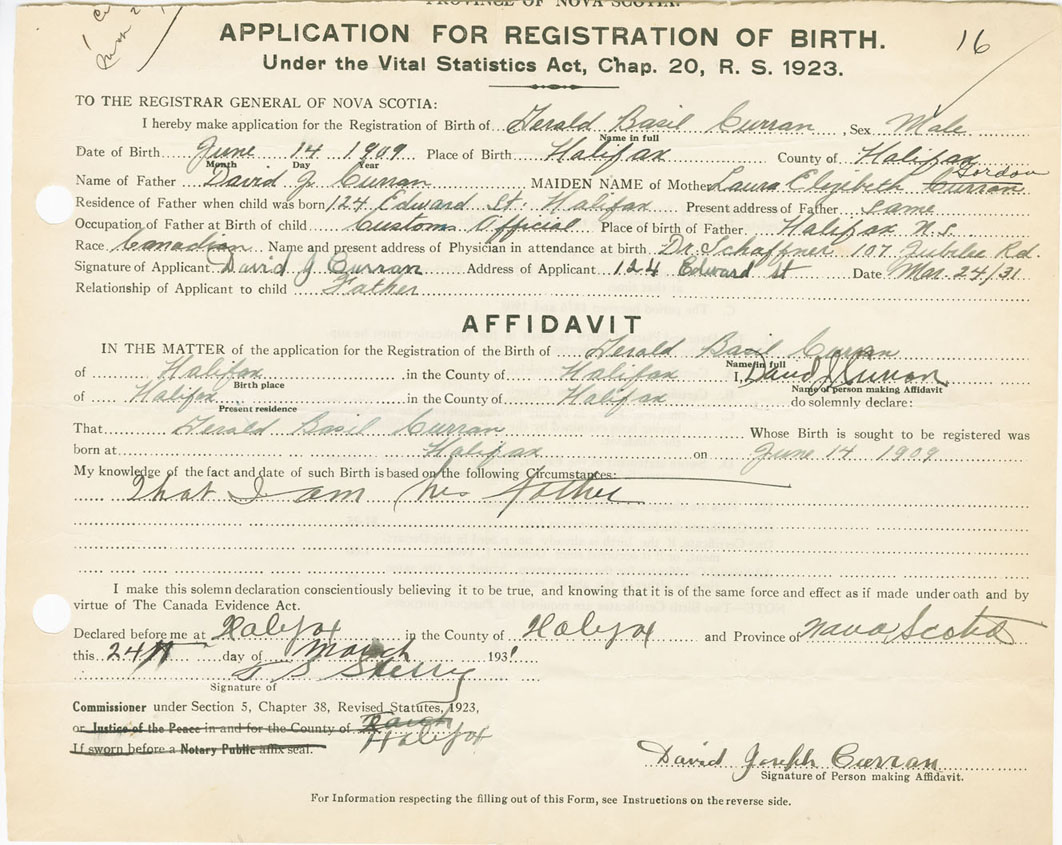 PROVINCE OF NOVA SCOTIA.
APPLICATION FOR REGISTRATION OF BIRTH.
16
Under the Vital Statistics Act, Chap. 20, R. S. 1923.
TO THE REGISTRAR GENERAL OF NOVA SCOTIA:
I hereby make application for the Registration of Birth of Gerald Basil Curran, Sex Male
Name in full
Date of Birth June 14 1909 Place of Birth Halifax County of Halifax
Month Day Year
Gordon
Name of Father David J Curran MAIDEN NAME of Mother Laura Elizibeth Curran
Residence of Father when child was born 124 Edward St. Halifax Present address of Father same
Occupation of Father at Birth of child Customs Official Place of birth of Father Halifax N.S.
Race Canadian Name and present address of Physician in attendance at birth Dr. Schaffner 107 Jubilee Rd.
Signature of Applicant David J Curran Address of Applicant 124 Edward St Date Mar. 24/31
Relationship of Applicant to child Father
AFFIDAVIT
IN THE MATTER of the application for the Registration of the Birth of Gerald Basil Curran
Name in full
of Halifax in the County of Halifax I, David J Curran
Birth place Name of person making Affidavit
of Halifax in the County of Halifax do solemnly declare:
Present residence
That Gerald Basil Curran Whose Birth is sought to be registered was
born at Halifax on June 14 1909
My knowledge of the fact and date of such Birth is based on the following Circumstances:
That I am his Father
I make this solemn declaration conscientiously believing it to be true, and knowing that it is of the same force and effect as if made under oath and by
virtue of The Canada Evidence Act.
Declared before me at Halifax in the County of Halifax and Province of Nova Scotia
this 24th day of March 1931
Signature of
Commissioner under Section 5, Chapter 38, Revised Statutes, 1923,
or Justice of the Peace in and for the County of
If sworn before a Notary Public affix seal. Halifax
David Joseph Curran
Signature of Person making Affidavit.
For Information respecting the filling out of this Form, see Instructions on the reverse side.